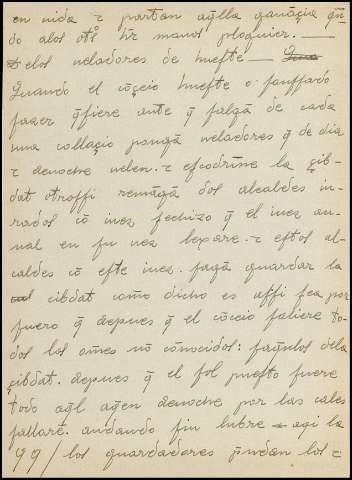 en vida τ partan aq̃lla ganãçia q̃n
do alos otº hr̃ manos ploguier.
delos veladores de hueste
Quando el cõçeio hueste o fonssado
fazer q̃siere ante q̃ salgã de cada
una collaçio pongã veladores q̃ de dia
τ denoche velen. τ escodriñe la çib-
dat otrossi remãgã dos alcaldes iu-
rados cõ iuez fechizo q̃ el iuez an-
nal en su vez lexare. τ estos al-
caldes cõ este iuez. fagã guardar la
cibdat como dicho es assi sea por
fuero q̃ depues q̃ el cõceio saliere to-
dos los omes nõ cõnoscidos: saq̃nlos dela
çibdat. depues q̃ el sol puesto fuere
todo aq̃l aq̃en denoche por las cales
fallarẽ. andando sin lubre aqi la
99/ los guardadores p̃ndan los τ